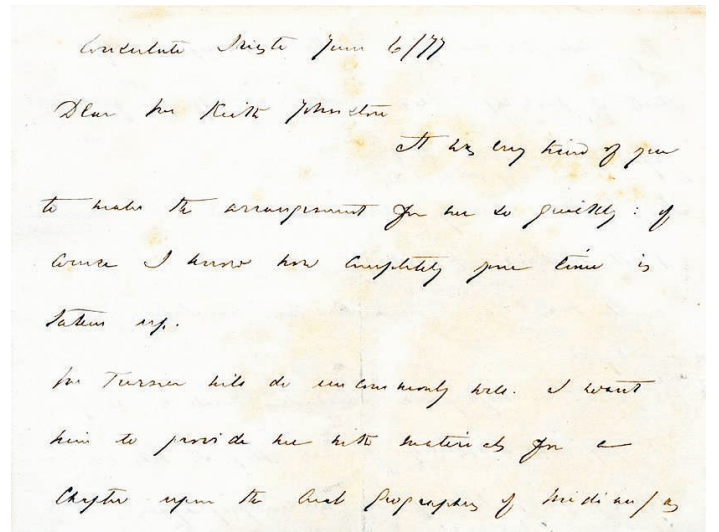 Consulate Trieste June 6/77
Dear Mr Keith Johnston
It was very kind of you
to make the arrangement for me so quickly : of
course I know how completely your time is
taken up.
Mr Turner will do uncommonly well. I want
him to provide me with materials for a
Chapter upon the Arab Geographers of Midian / as